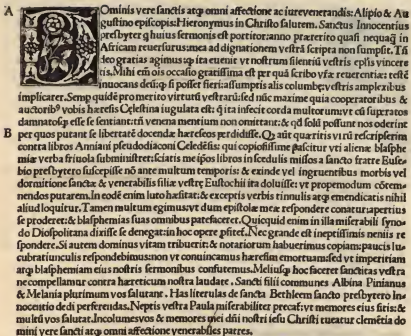 A
DOminis vere sanctis atq; omni affectione ac iure venerandis: Alipio & Au
gustino episcopis: Hieronymus in Christo salutem. Sanctus Innocentius
presbyter q̃ huius sermonis est portitor: anno præterito quasi nequaq̃ in
Africam reuersurus: mea ad dignationem vestrã scripta non sumpsit. Tñ
deo gratias agimus: q̃ ita euenit vt nostrum silentiũ vestris eplis vincere
tis. Mihi em̃ ois occasio gratissima est per quã scribo vr̃æ reuerentiæ: testẽ
inuocans deũ: q̃ si posset fieri: assumptis alis columbę: vestris amplexibus
implicarer. Semp quidẽ pro merito virtutũ vestrarũ: sed nũc maxime quia cooperatoribus &
auctoribꝰ vobis hæresis Celestina iugulata est: q̃ ita infecit corda multorum: vt cũ superatos
damnatosq; esse se sentiant: tñ venena mentium non omittant: & q̃ soli possunt nos oderint
B per quos putant se libertatẽ docendæ hæreseos perdidisse. Q aũt quæritis vtrũ rescripserim
contra libros Anniani pseudodiaconi Celedẽsis: qui copiosissime pascitur vti alienæ blasphe
miæ verba friuola subministret: sciatis me ipsos libros in scedulis missos a sancto fratre Euse
bio presbytero suscepisse nõ ante multum temporis: & exinde vel ingruentibus morbis vel
dormitione sanctæ & venerabilis filiæ vestrę Eustochii ita doluisse: vt propemodum cõtem-
nendos putarem. In eodẽ enim luto hæsitat: & exceptis verbis tinnulis atq; emendicatis nihil
aliud loquitur. Tamen multum egimus: vt dum epistolæ meæ respondere conatur: apertius
se proderet: & blasphemias suas omnibus patefaceret. Quicquid enim in illa miserabili syno
do Diospolitana dixisse se denegat: in hoc opere ꝓfitet̃. Nec grande est ineptissimis neniis re
spondere. Si autem dominus vitam tribuerit: & notariorum habuerimus copiam: paucis lu-
cubratiunculis respondebimus: non vt conuincamus hæresim emortuam: sed vt imperitiam
atq; blasphemiam eius nostris sermonibus confutemus. Meliusq; hoc faceret sanctitas vestra
ne compellamur contra hæreticum nostra laudare. Sancti filii communes Albina Pinianus
& Melania plurimum vos salutant. Has literulas de sancta Bethleem sancto presbytero In-
nocentio dedi perferendas. Neptis vestra Paula miserabiliter precat̃: vt memores eius sitis: &
multũ vos salutat. Incolumes vos & memores mei dñi nostri iesu Christi tueatur clemẽtia do
mini vere sancti atq; omni affectione venerabiles patres.